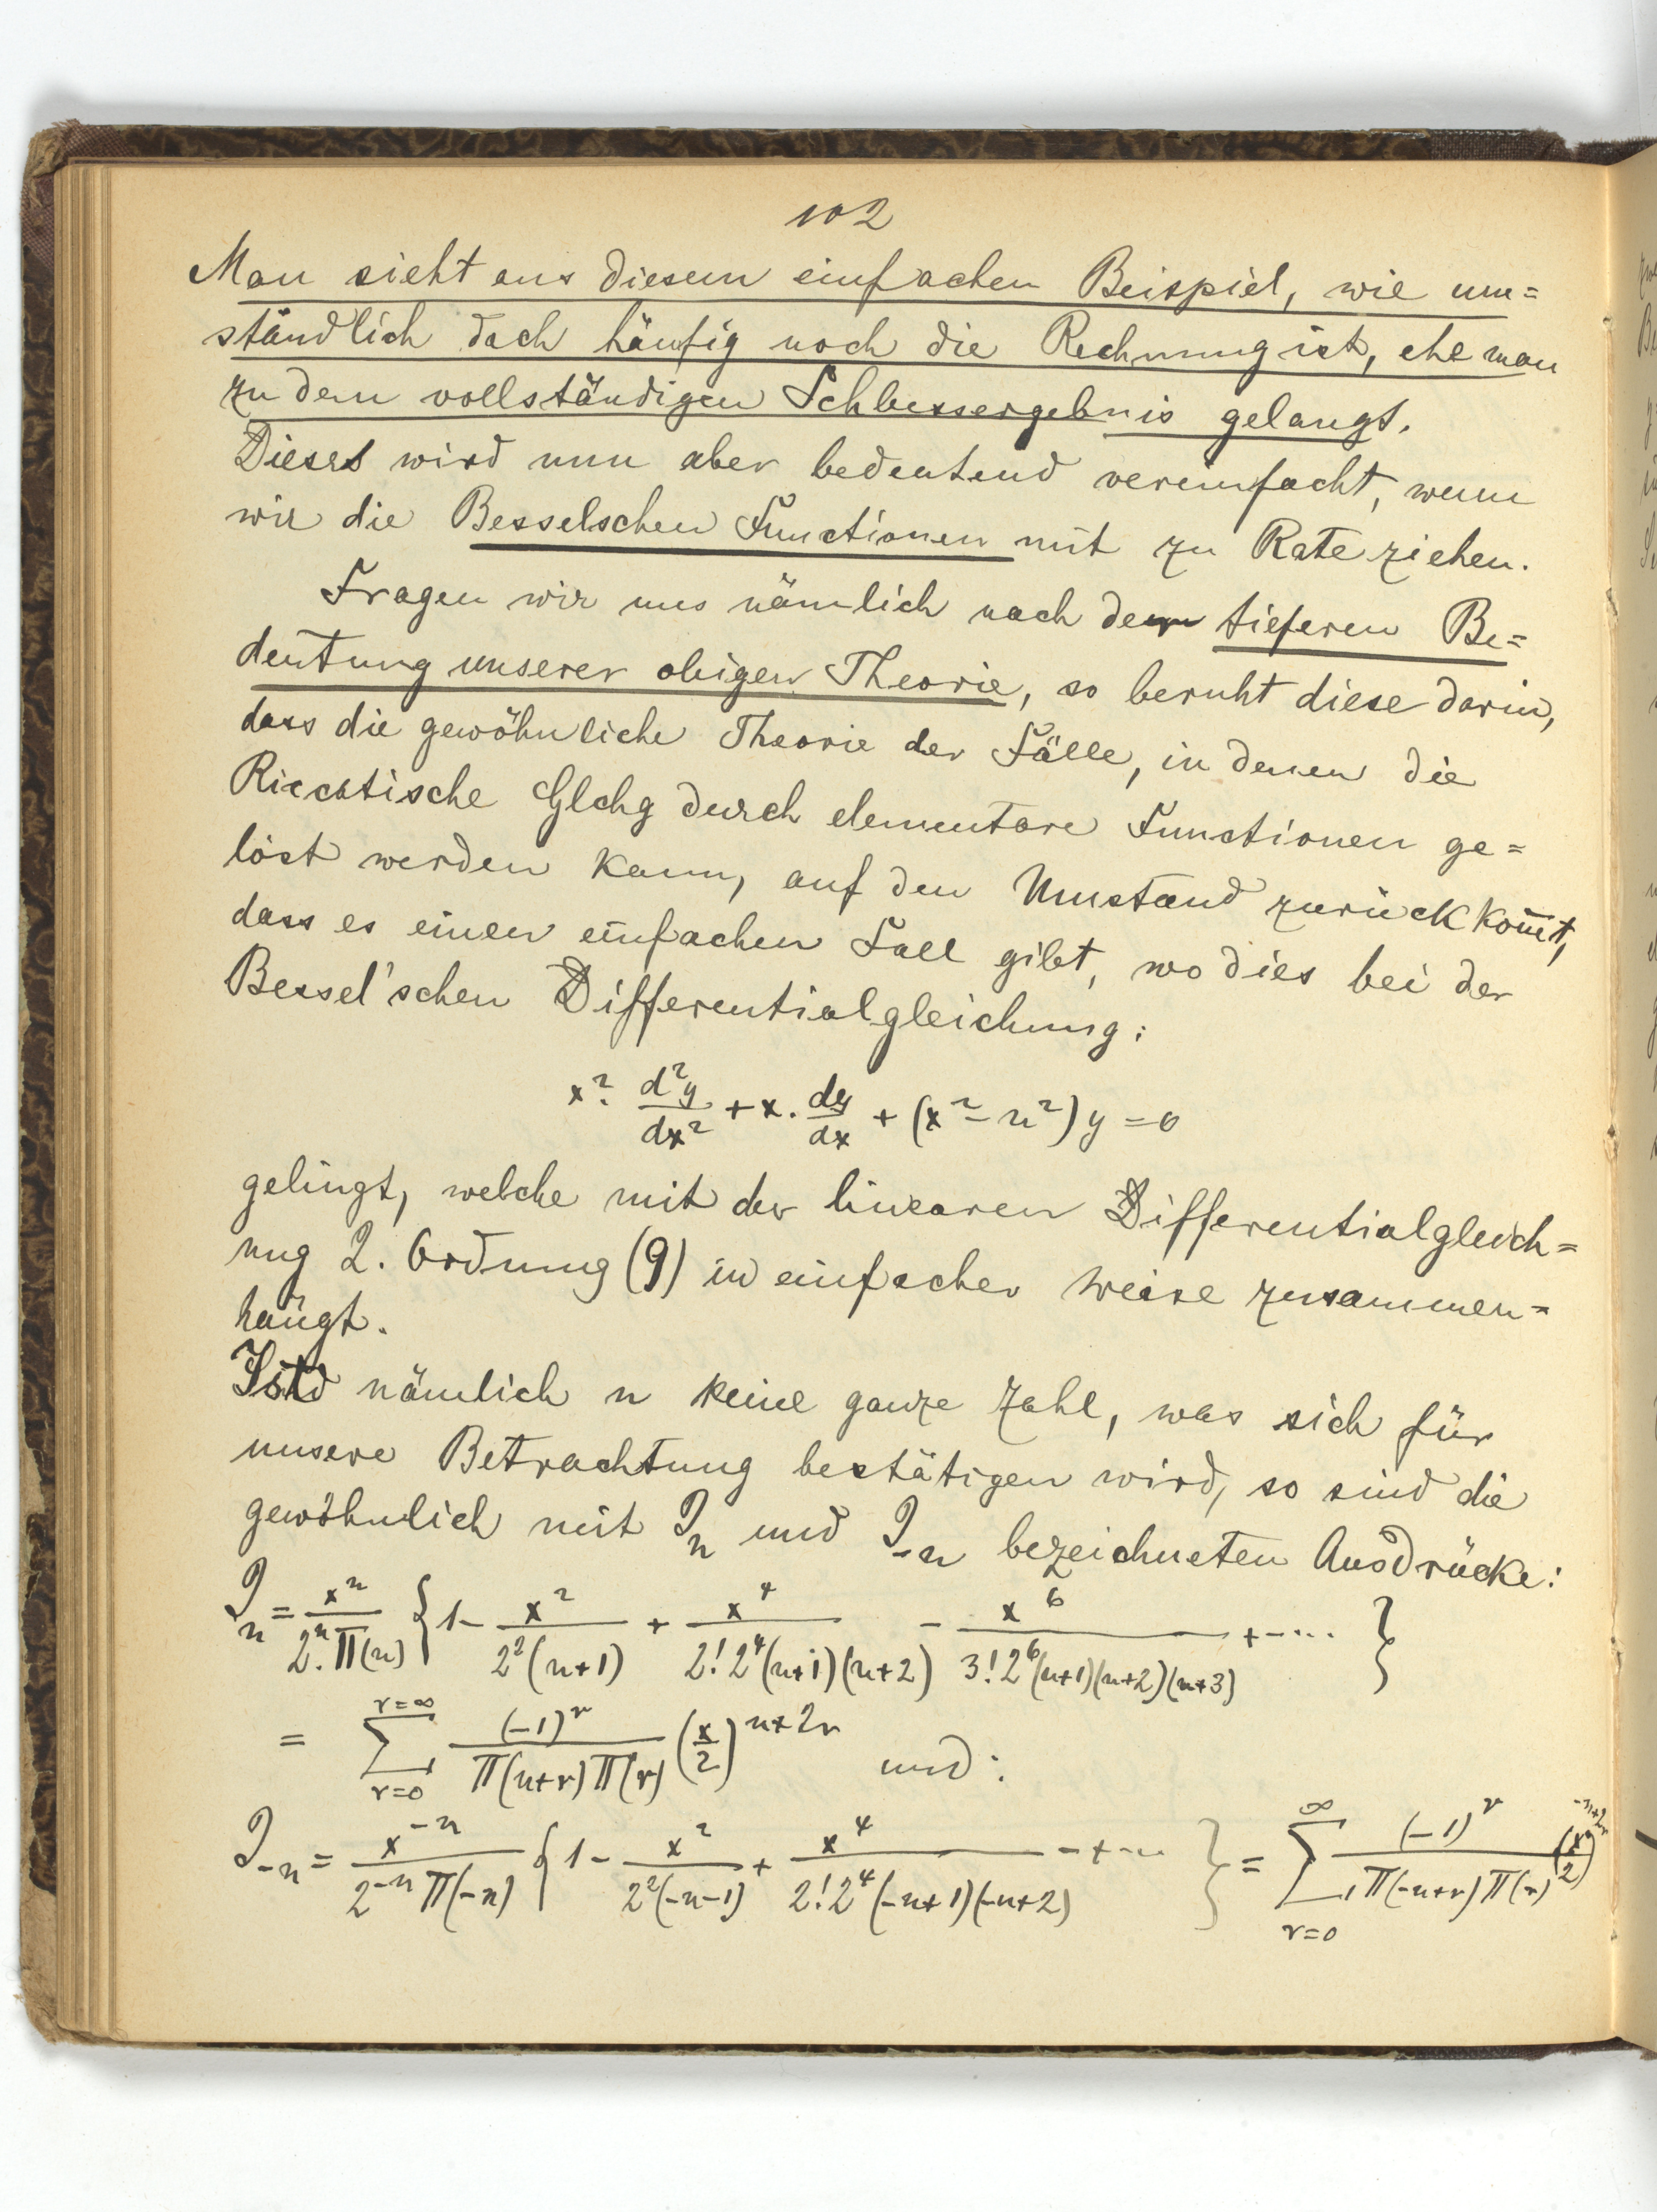 102
Man sieht aus diesem einfachen Beispiel, wie um=
ständlich doch häufig noch die Rechnung ist, ehe man
zu dem vollständigen Schlussergebnis gelangt.
Dieses wird nun aber bedeutend vereinfacht, wenn
wir die Besselschen Functionen mit zu Rate ziehen.
Fragen wir uns nämlich nach der tieferen Be=
deutung unserer obigen Theorie, so beruht diese darin,
dass die gewöhnliche Theorie der Fälle, in denen die
Riccatische Glchg durch elementare Functionen ge=
löst werden kann, auf den Umstand zurückkom̅t,
dass es einen einfachen Fall gibt, wo dies bei der
Bessel'schen Differentialgleichung:
x². d²y/dx² + x. dy/dx + (x² - n²) y = 0
gelingt, welche mit der linearen Differentialgleich=
ung 2. Ordnung (9) in einfacher Weise zusammen=
hängt.
Ist nämlich n keine ganze Zahl, was sich für
unsere Betrachtung bestätigen wird, so sind die
gewöhnlich mit J_n und J_-n bezeichneten Ausdrücke:
J_n = x^n / 2^n. Π(n) { 1 - x² / 2²(n+1) + x⁴ / 2! 2⁴(n+1)(n+2) - x⁶ / 3! 2⁶(n+1)(n+2)(n+3) + - ... }
= Σ_{r=0}^{r=∞} (-1)^r / Π(n+r) Π(r) (x/2)^{n+2r} und:
J_-n = x^{-n} / 2^{-n} Π(-n) { 1 - x² / 2²(-n-1) + x⁴ / 2! 2⁴(-n+1)(-n+2) - + - ... } = Σ_{r=0}^{∞} (-1)^r / Π(-n+r) Π(r) (x/2)^{-n+2r}